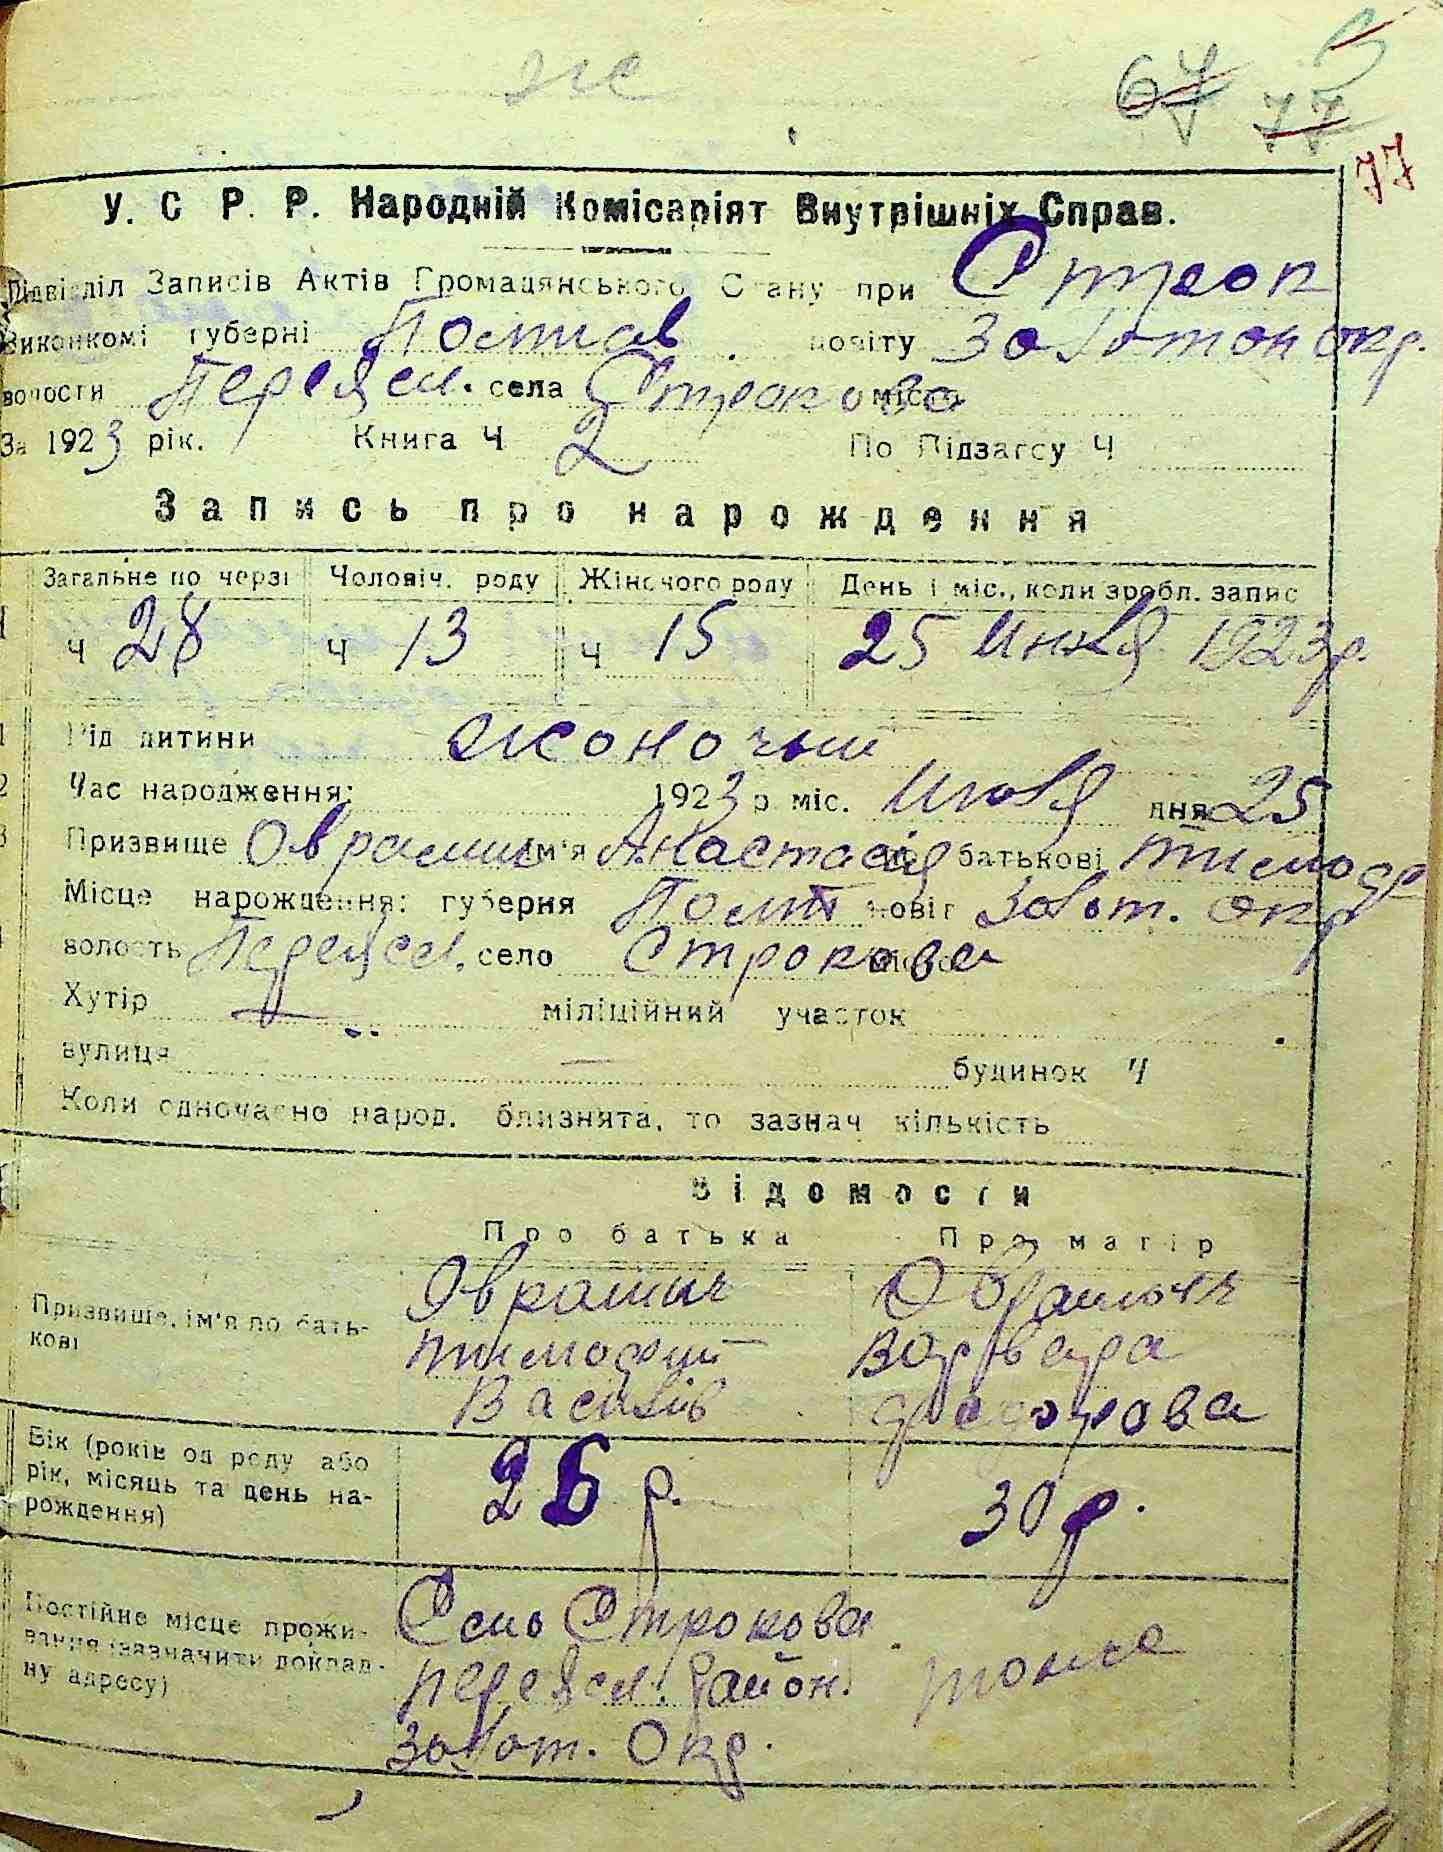 же
67 77
77
У. С. Р. Р. Народній Комісаріят Внутрішніх Справ.
Підвідділ Записів Актів Громадянського Стану при Строк
Виконкомі губерні Полтав повіту Золотон окр.
волости Переясл. села Строкова місто
За 1923 рік. Книга Ч 2 По Підзагсу Ч
Запись про нарождення
Загальне по черзі Чоловіч. роду Жіночого роду День і міс., коли зробл. запис
Ч 28 Ч 13 Ч 15 25 Июня 1923 р.
1 Рід дитини жоночый
2 Час народження: 1923 р міс. Июня дня 25
3 Призвище Оврамиць ім'я Анастасія по батькові Тимофе
Місце нарождення: губерня Полт повіт Золот. окр
волость Переясл. село Строкова місто
Хутір — міліційний участок
вулиця — будинок Ч
Коли одночасно народ. близнята, то зазнач кількість
Відомости
Про батька Про матір
Призвище, ім'я по бать-
кові
Оврамиць Оврамиць
Тимофий Варвара
Василів Федорова
Вік (років од роду або
рік, місяць та день на-
рождення)
26 р. 30 р.
Постійне місце прожи-
вання (зазначити доклад-
ну адресу)
Село Строкова
переясл. район. тоже
Золот. Окр.